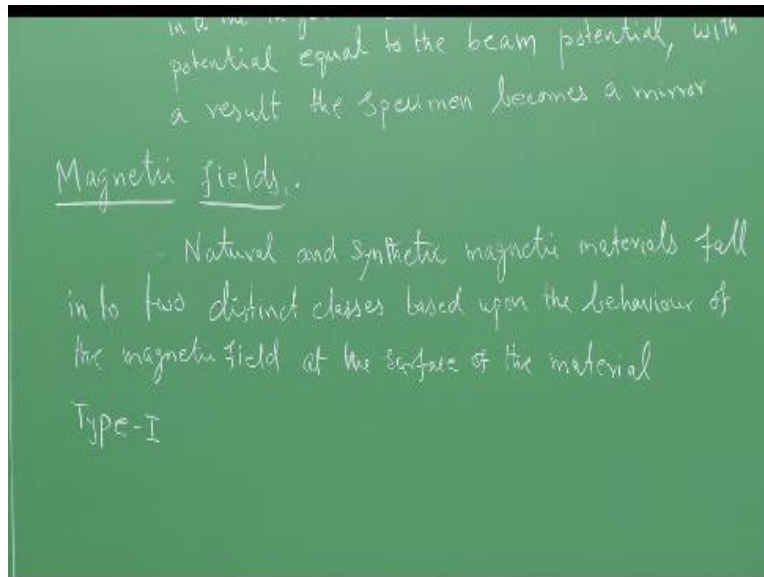 potential equal to the beam potential, with
a result the specimen becomes a mirror
Magnetic fields.
Natural and Synthetic magnetic materials fall
in to two distinct classes based upon the behaviour of
the magnetic field at the surface of the material
Type-I